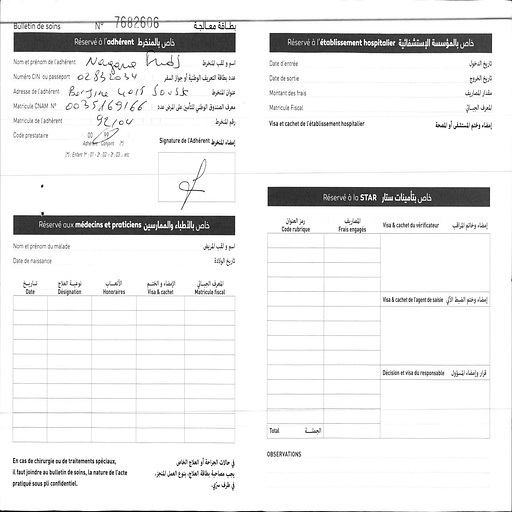 Bulletin de soins N° 7682606 بطاقة معالجة
Réservé à l'adhérent خاص بالمنخرط
Nom et prénom de l'adhérent اسم و لقب المنخرط
Numéro CIN ou passeport 02832034 عدد بطاقة التعريف الوطنية أو جواز السفر
Adresse de l'adhérent عنوان المنخرط
Matricule CNAM N° 0035169166 معرف الصندوق الوطني للتأمين على المرض عدد
Matricule de l'adhérent 92/04 رقم المنخرط
Code prestataire 00 99
Adhérent Conjoint (*)
(*) : Enfant 1er : 01 - 2è : 02 - 3è : 03 ... etc
Signature de l'Adhérent إمضاء المنخرط
Réservé aux médecins et praticiens خاص بالأطباء والممارسين
Nom et prénom du malade اسم و لقب المريض
Date de naissance تاريخ الولادة
تـاريـخ نوعيـة العلاج الأتعـــاب الإمضاء و الختـم المعرف الجبـائي
Date Désignation Honoraires Visa & cachet Matricule fiscal
En cas de chirurgie ou de traitements spéciaux,
il faut joindre au bulletin de soins, la nature de l'acte
pratiqué sous pli confidentiel.
في حالات الجراحة أو العلاج الخاص
يجب مصاحبة بطاقة العلاج، بنوع العمل المنجز،
في ظرف سرّي.
Réservé à l'établissement hospitalier خاص بالمؤسسة الإستشفائية
Date d'entrée تاريخ الدخول
Date de sortie تاريخ الخروج
Montant des frais مقدار المصاريف
Matricule Fiscal المعرف الجبـائي
Visa et cachet de l'établissement hospitalier إمضاء وختم المستشفى أو المصحة
Réservé à la STAR خاص بتأمينات ستار
رمز العنوان المصاريف
Code rubrique Frais engagés
Visa & cachet du vérificateur إمضاء وخاتم المراقب
Visa & cachet de l'agent de saisie إمضاء وختم الضبط الآلي
Décision et visa du responsable قرار وإمضاء المسؤول
Total الجملـــة
OBSERVATIONS